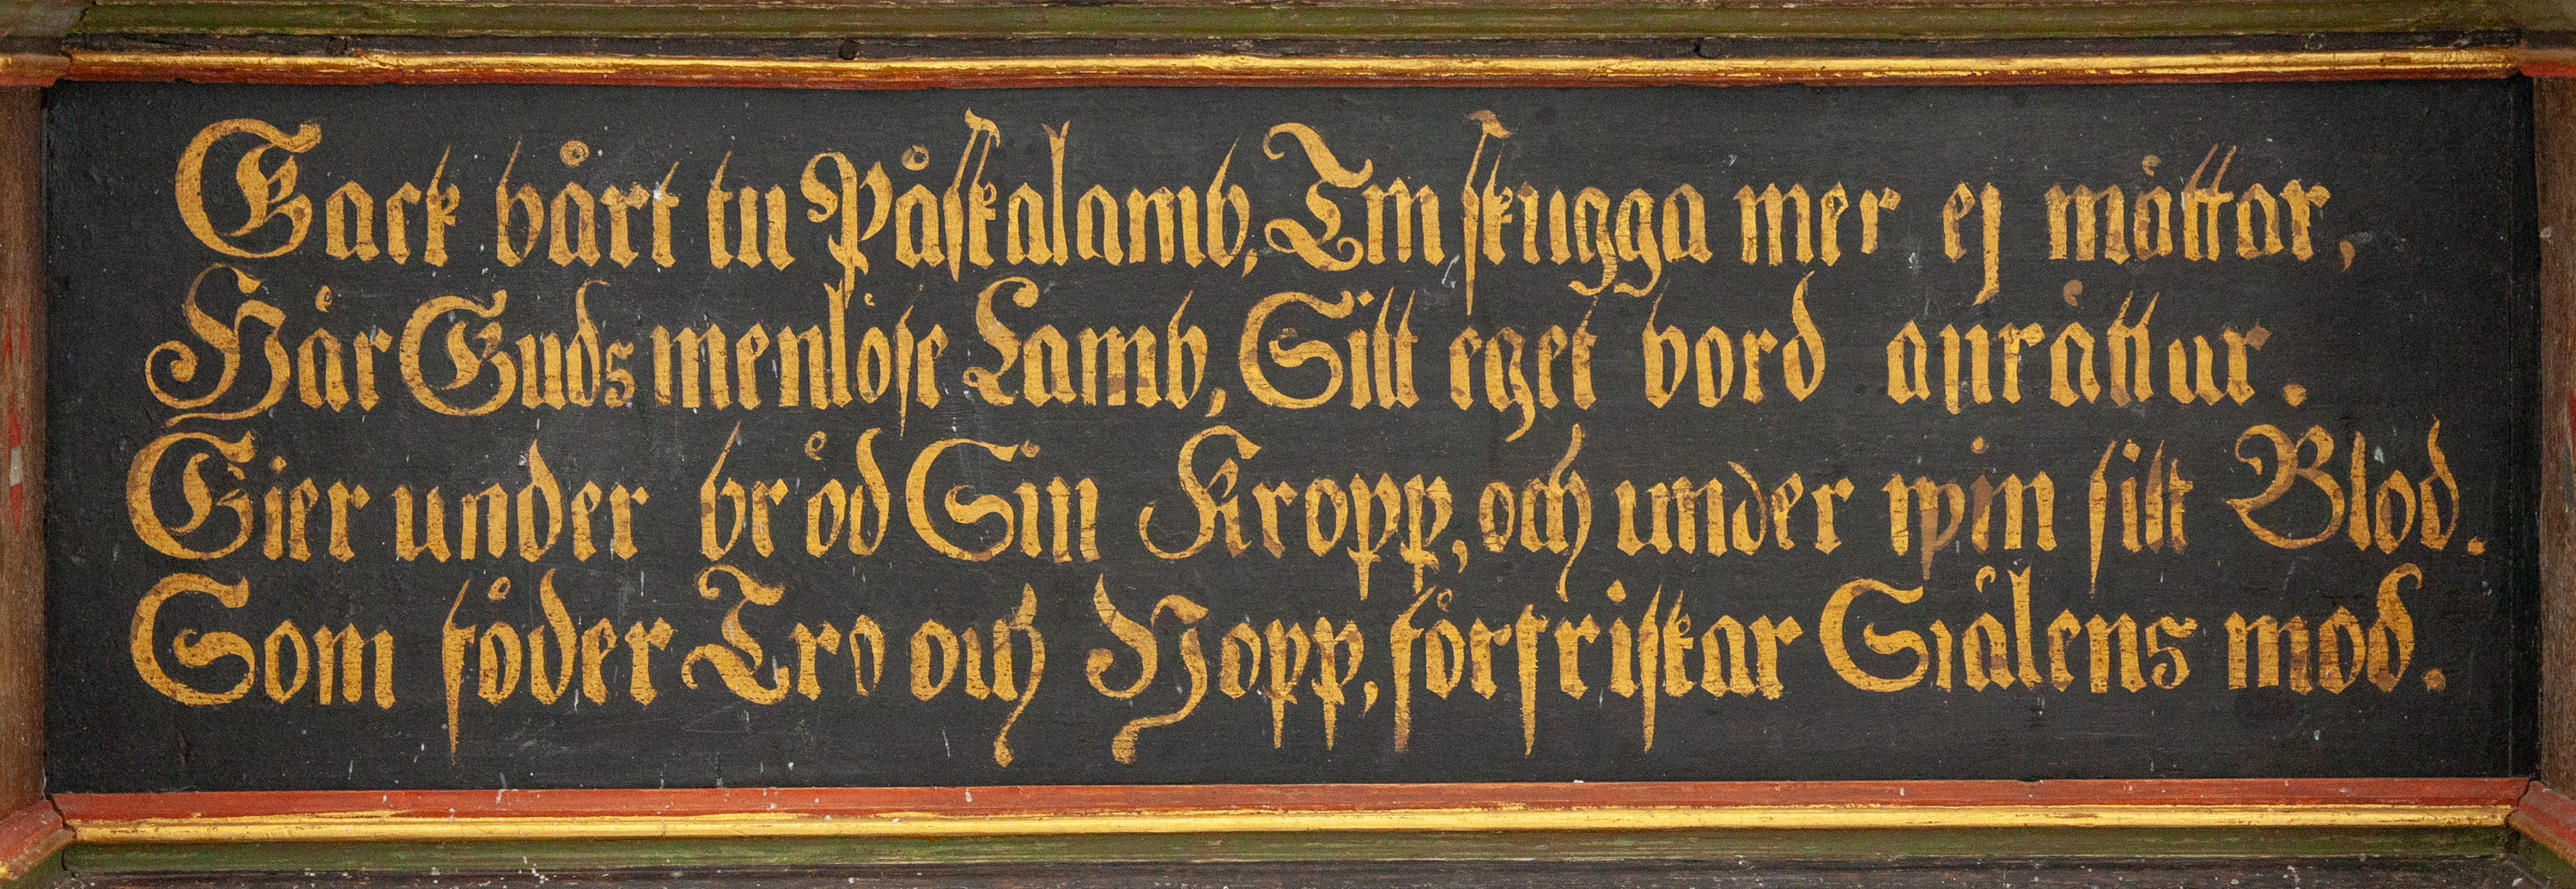 Gack bårt tu Påskalamb, Tin skugga mer ej måttar,
Hår Guds menlöse Lamb, Sitt eget bord anråttur.
Gier under bröd Sin Kropp, och under win sitt Blod.
Som föder Tro och Hopp, förfriskar Siålens mod.